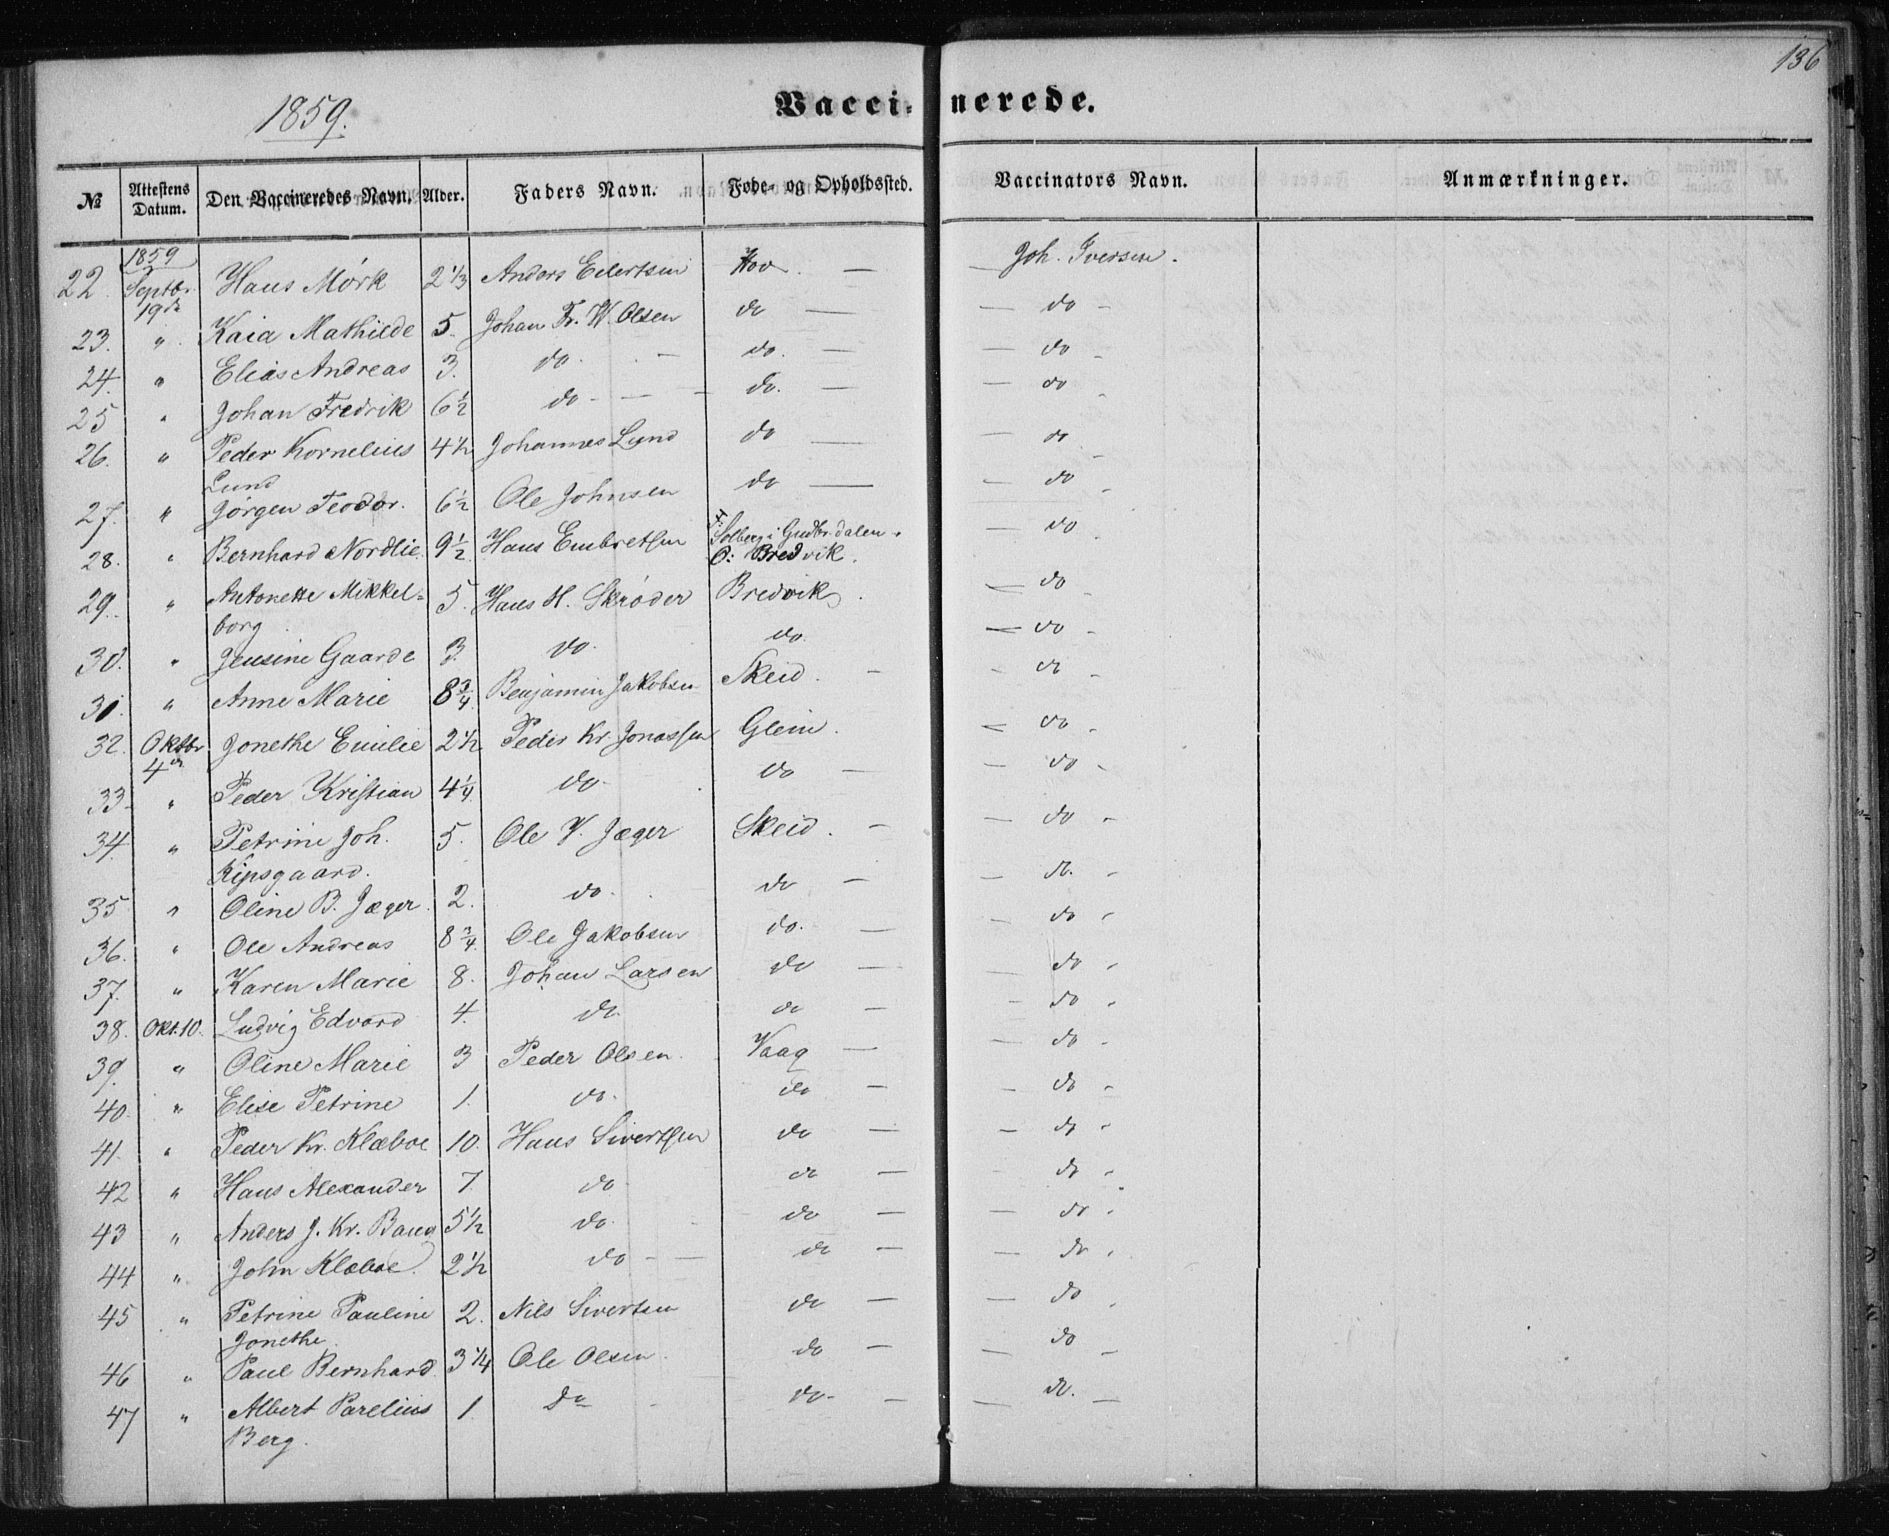 136
1859.
Vaccinerede.
№ Attestens Datum. Den Vaccineredes Navn. Alder. Faders Navn. Føde- og Opholdssted. Vaccinators Navn. Anmærkninger.
1859
22. Septbr. 19de Hans Mørk 2 1/3 Anders Eilertsen Hov. — Joh. Iversen.
23. " Kaia Mathilde 5. Johan Fr. W. Olsen do — — do –
24. " Elias Andreas 3. do. — do. — — do –
25 " Johan Fredrik 6 1/2 do - — do. — — do
26. " Peder Kornelius 4 1/2 Johannes Lund do — — do
Lund
27. " Jørgen Teodor. 6 1/2 Ole Johnsen do — — do –
28. " Bernhard Nordlie 9 1/2 Hans Embretsen F: Solberg i Gudbr.dalen. — do
O: Bredvik.
29. " Antonette Mikkel= 5. Hans H. Skrøder Bredvik. — do –
borg.
30. " Jensine Gaarde 3. do. do. — do –
31. " Anne Marie 8 3/4 Benjamin Jakobsen Skeid. – – do –
32. Oktbr 4de Jonethe Emilie 2 1/2 Peder Kr. Jonassen Glein. — do –
33 " Peder Kristian 4 1/4 do- do — — do –
34. " Petrine Joh. 5. Ole V. Jæger Skeid. – — do –
Ripsgaard.
35 " Oline B. Jæger. 2. do. do — — do. –
36. " Ole Andreas 8 3/4 Ole Jakobsen do. — — do –
37. " Karen Marie 8. Johan Larsen do — — do –
38. Okt. 10. Ludvig Edvard 4. do. do — – do –
39. " Oline Marie 3 Peder Olsen. Vaag — — do –
40. " Elise Petrine 1. do. do — — do –
41. " Peder Kr. Klæboe 10. Hans Sivertsen do — — do –
42 " Hans Alexander 7. do. do — — do –
43 " Anders J. Kr. Baug 5 1/2 do. do — — do –
44 " John Klæboe. 2 1/2 do - — do — — do –
45 " Petrine Pauline 2. Nils Sivertsen do — — do –
Jonethe
46 " Paul Bernhard. 3 1/4 Ole Olsen. do — — do –
47 " Albert Parelius 1. do do- — — do. —
Berg.